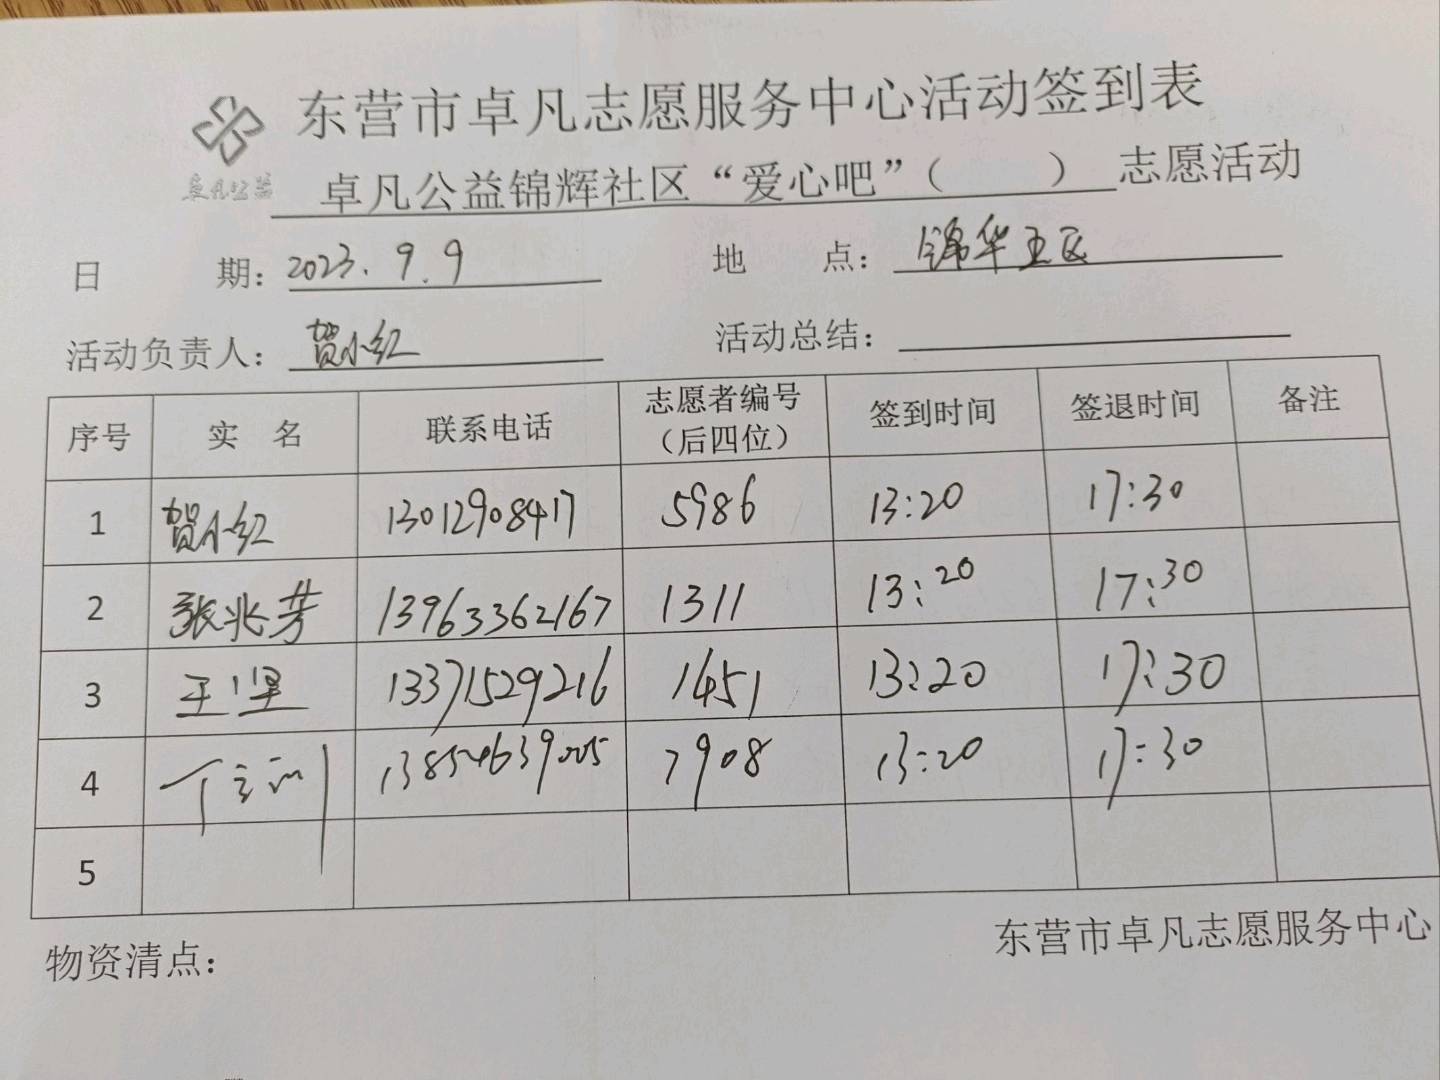 东营市卓凡志愿服务中心活动签到表
卓凡公益
卓凡公益锦辉社区“爱心吧”（　　）志愿活动
日　期：2023.9.9　地　点：锦华五区
活动负责人：贺小红　活动总结：
序号　实　名　联系电话　志愿者编号（后四位）　签到时间　签退时间　备注
1　贺小红　13012908417　5986　13:20　17:30
2　张兆芳　13963362167　1311　13:20　17:30
3　王坚　13371529216　1451　13:20　17:30
4　7908　13:20　17:30
5
物资清点：
东营市卓凡志愿服务中心